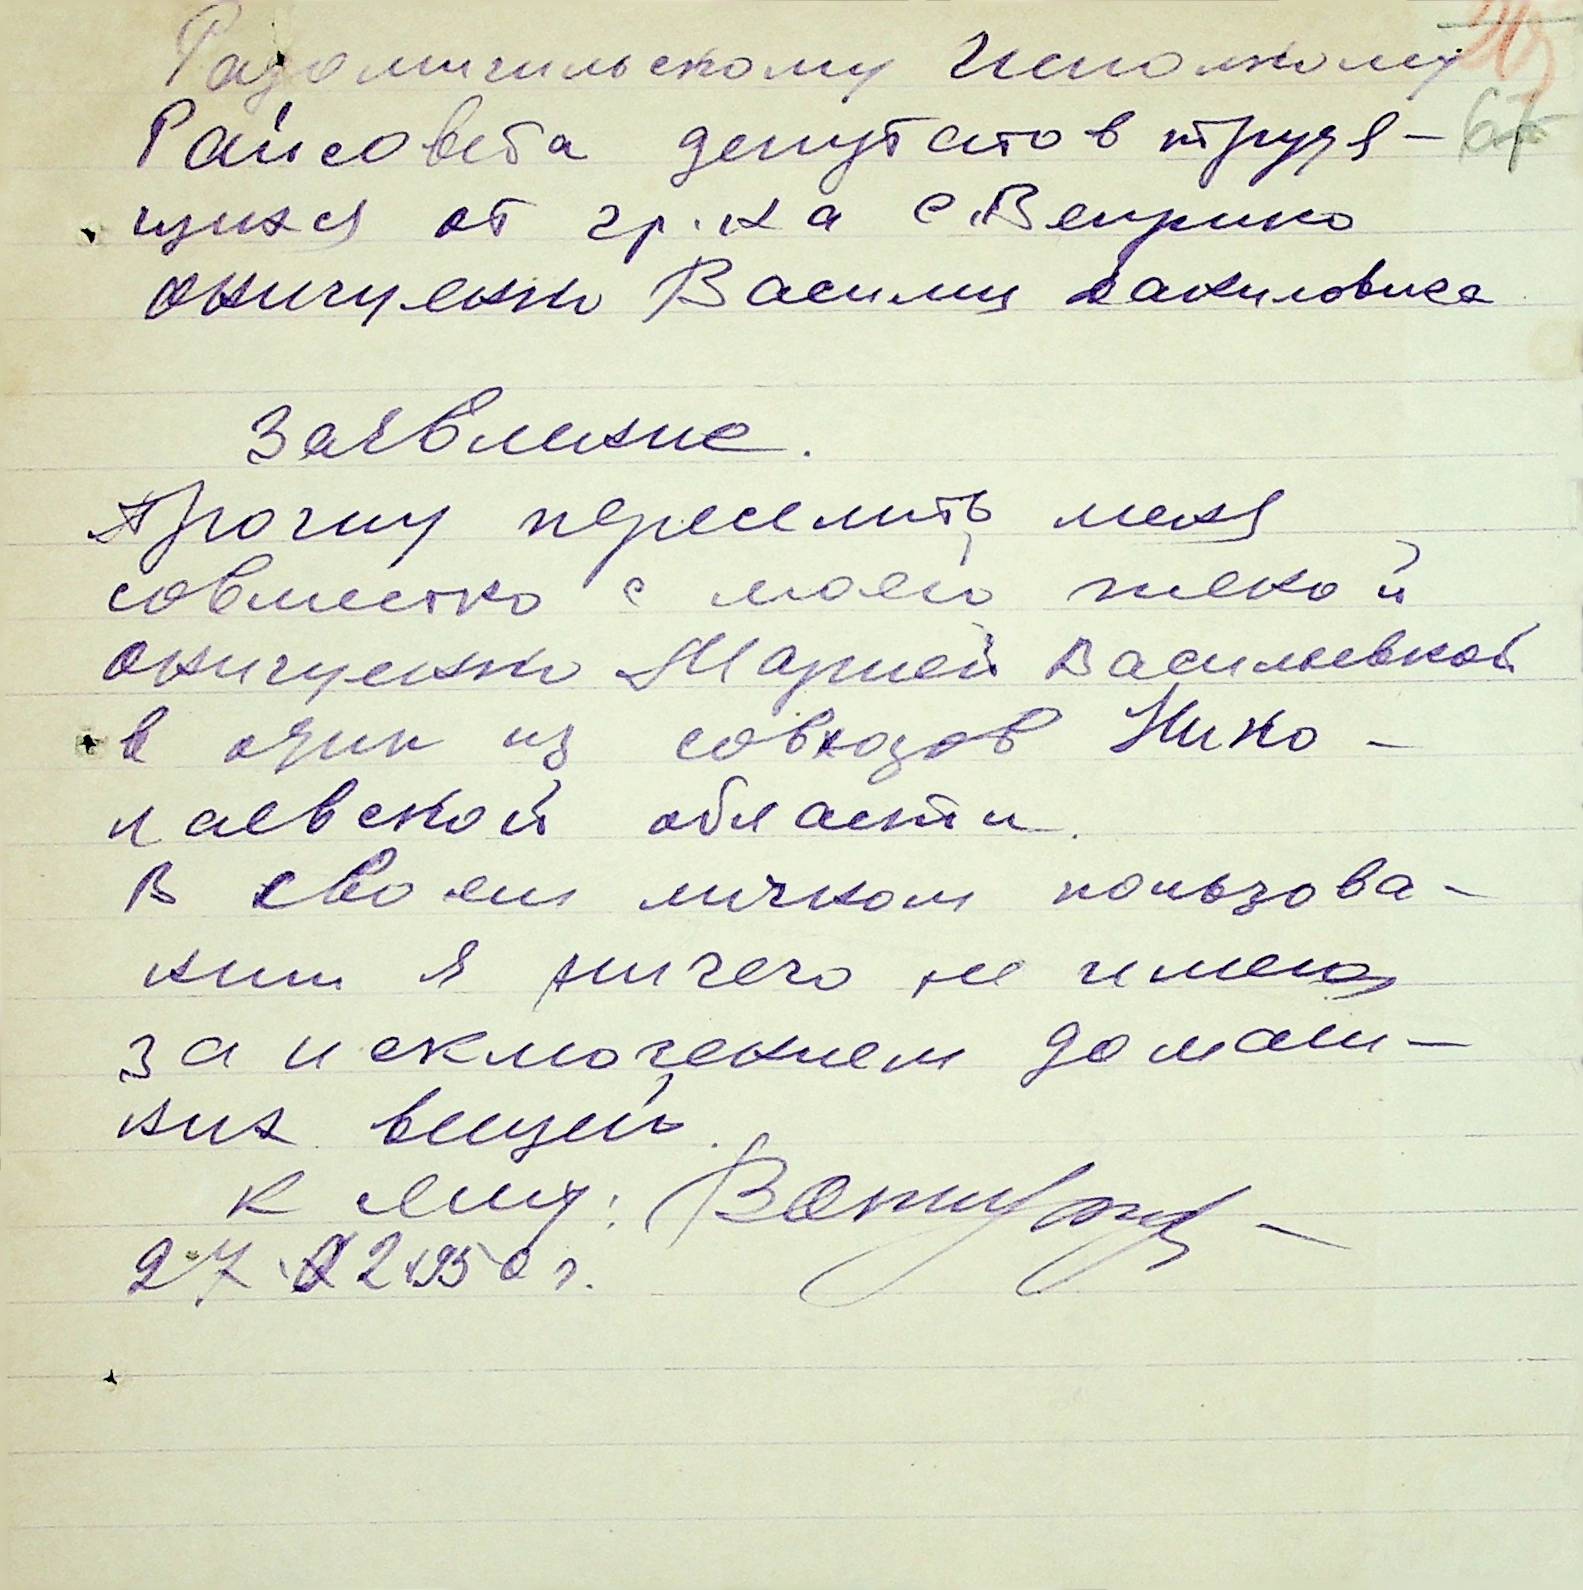 Радомишльскому Исполкому
Райсовета депутатов трудя-
щихся от гр.-на с. Веприно
Оничуенко Василия Даниловича
Заявление.
Прошу переселить меня
совместно с моей женой
Оничуенко Марией Васильевной
в один из совхозов Нико-
лаевской области.
В своем личном пользова-
нии я ничего не имею
за исключением домаш-
них вещей.
К сему:
27.12.1950 г.
67